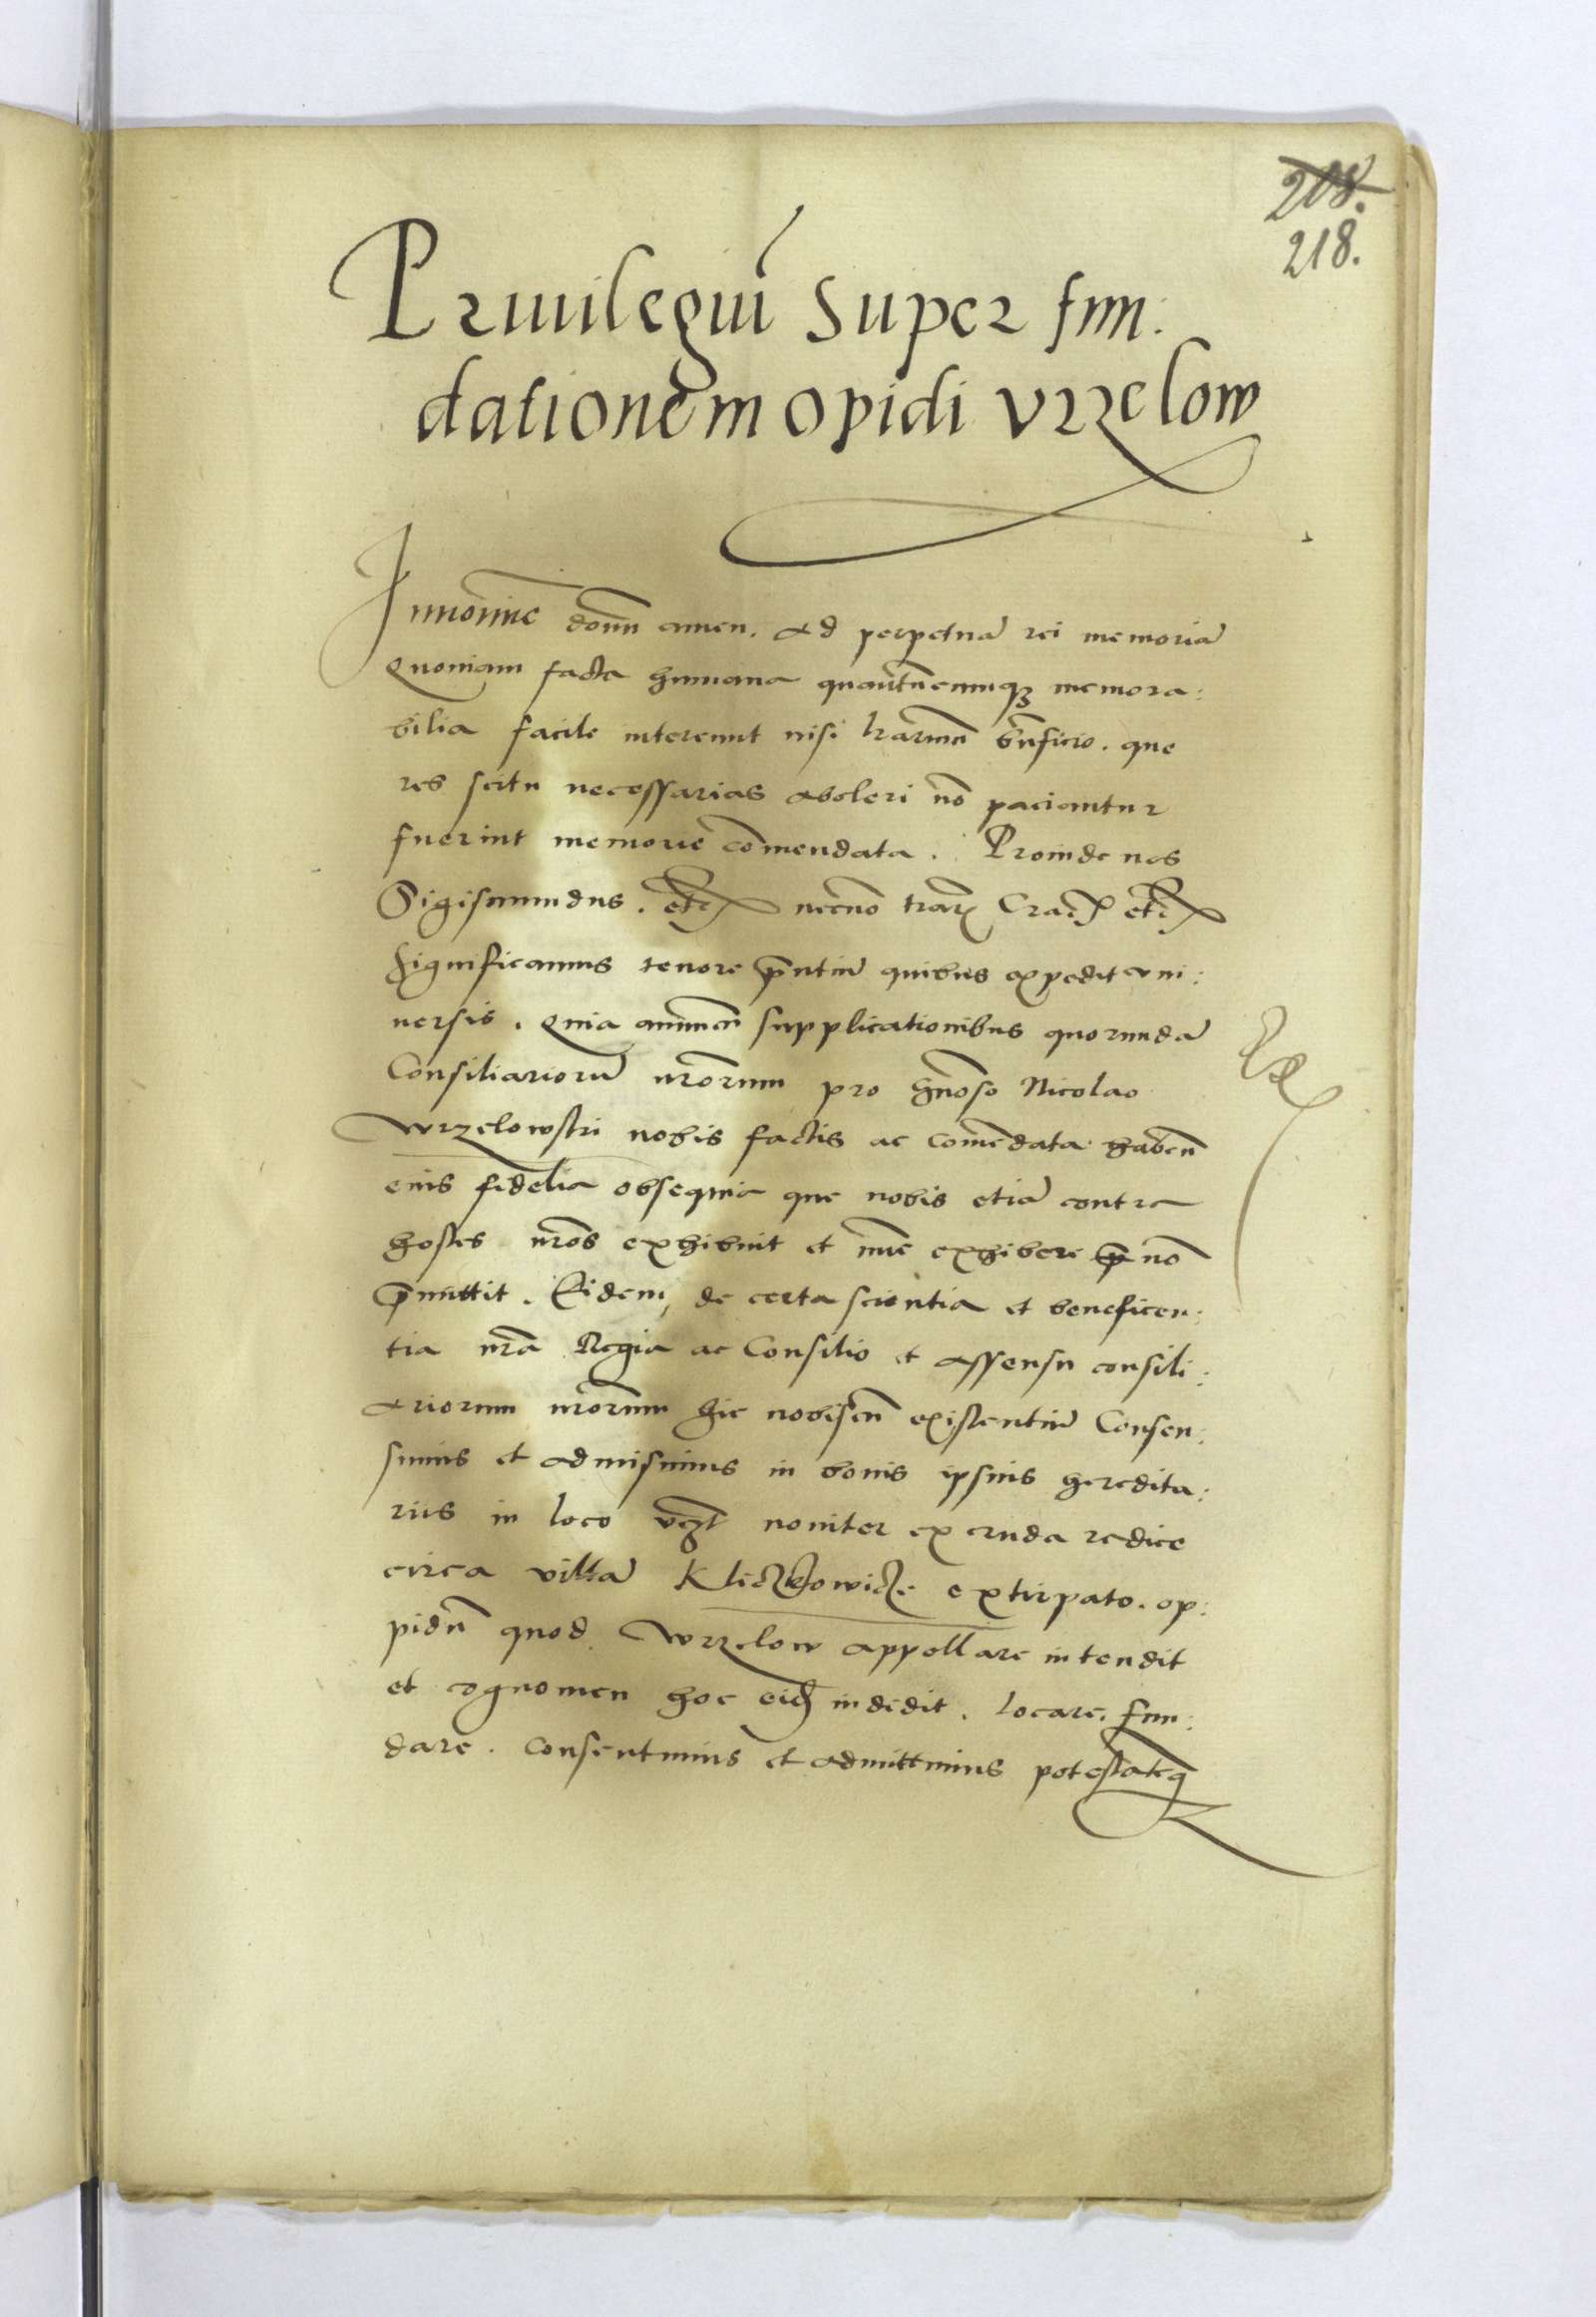 208.
218.
Priuilegiũ super fun:
dationem opidi vrzelow
In noĩe domĩ amen. Ad perpetuã rei memoriã
Quoniam facta humana quantũcumqȝ memora:
bilia facile intereunt nisi lr̃arum bñficio. que
res scitu necessarias aboleri nõ paciantur
fuerint memorie cõmendata. Proinde nos
Sigismundus. etc̃ necnõ trar̃ Crac̃ etc̃
Significamus tenore pñtiũ quibus expedit vni:
uersis. Quia animũ supplicationibus quorundã
Consiliariorũ nr̃orum pro gñoso Nicolao
Wrzelowski nobis factis ac comẽdata habeñ
eius fidelia obsequia que nobis etiã contra
hostes nr̃os exhibuit et nũc exhibere nõ
p̃mittit. Eidem de certa scientia et beneficen:
tia nr̃a Regia ac Consilio et assensu consili:
ariorum nr̃orum hic nobiscũ existentiũ Consen:
simus et admisimus in bonis ipsius heredita:
riis in loco noniter ex cruda radice
circa villã Kliczkowicze extirpato. op:
pidũ quod Wrzelow appellare intendit
et cognomen hoc eid̃ indidit. locare. fun:
dare. consentimus et admittimus potestatẽqȝ